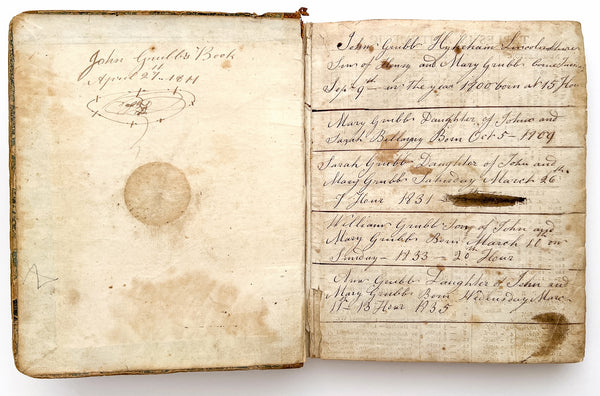 John Grubb's Book
April 27 - 1811
John Grubb Hykeham Lincolnshire
Son of Henry and Mary Grubb born
Sept 9th in the year 1800 born at 15 Hour
Mary Grubb Daughter of John and
Sarah Bellamy Born Oct 5 - 1809
Sarah Grubb Daughter of John and
Mary Grubb Saturday March 26th
9 Hour 1831
William Grubb Son of John and
Mary Grubb Born March 10th on
Sunday - 1833 - 20th Hour
Ann Grubb Daughter of John and
Mary Grubb Born Wednesday Marc
11th 13 Hour 1835